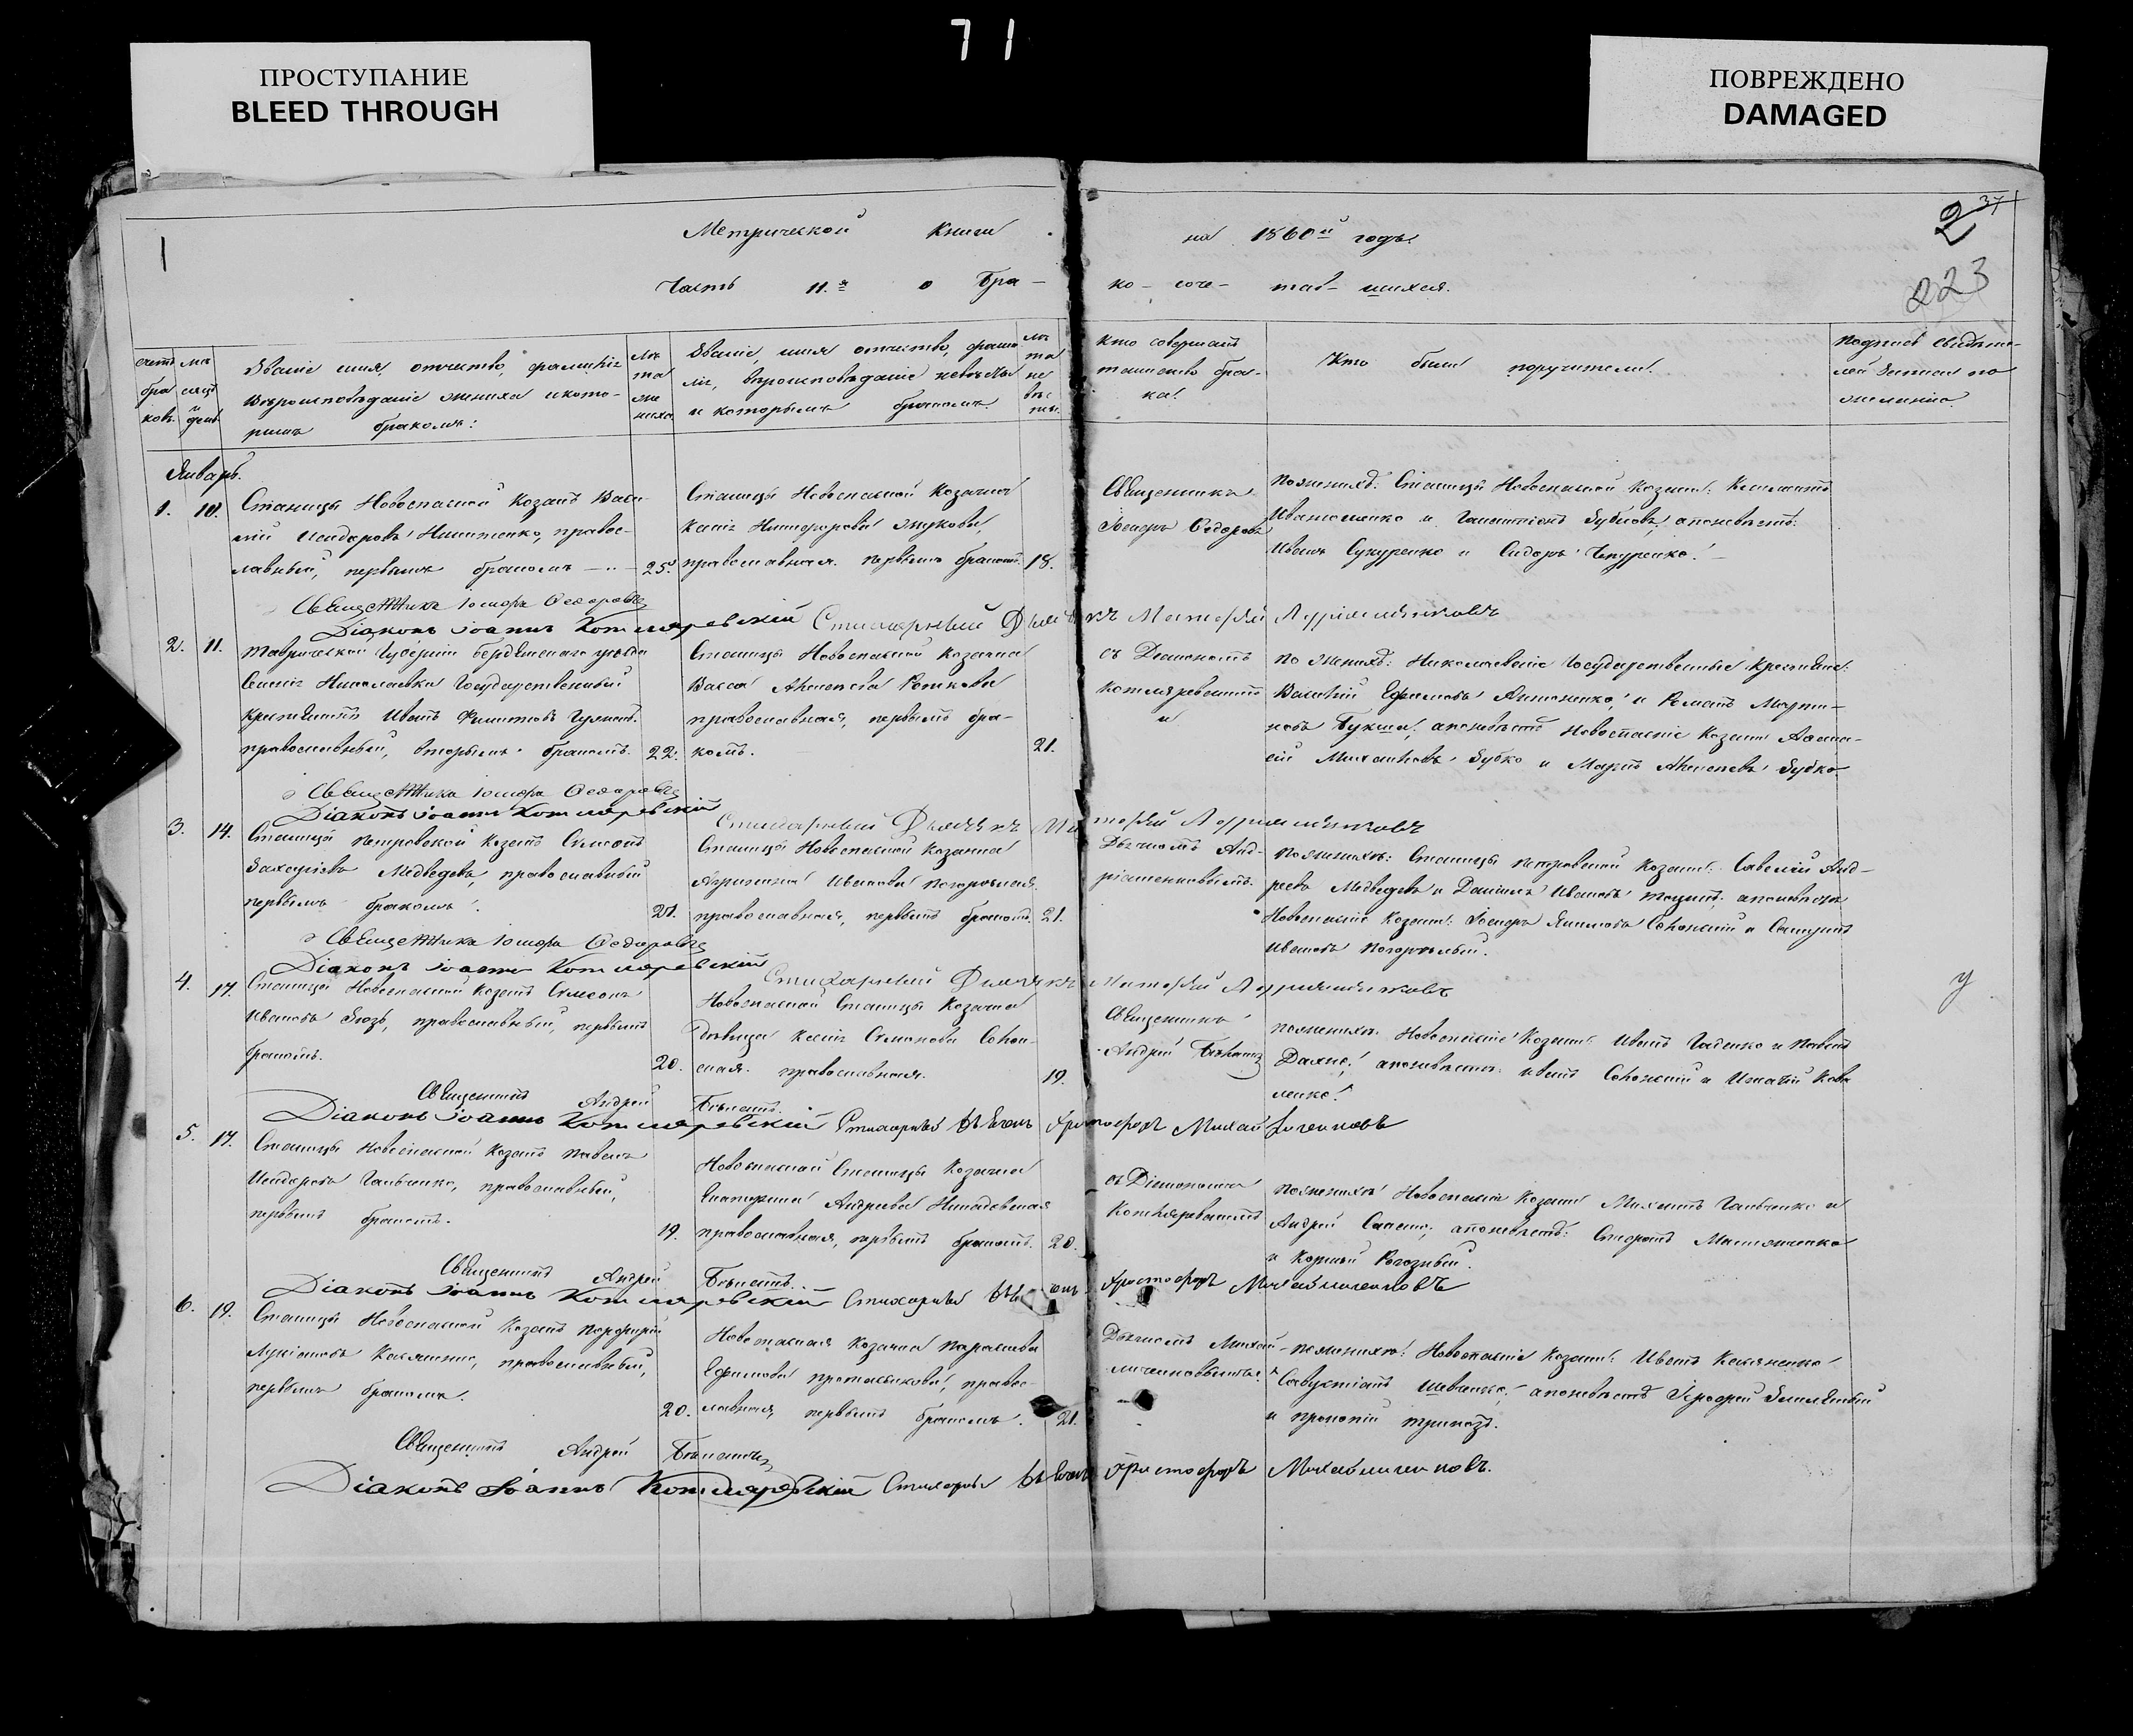 71
ПРОСТУПАНИЕ
BLEED THROUGH
ПОВРЕЖДЕНО
DAMAGED
1
Метрической Книги
на 1860й годъ.
37
2
223
Часть II.я о Бра-
ко-соче-тав-шихся.
счетъ бра ковъ.
мѣ сяцъ и день
Званіе имя, отчество, фамилія
вѣроисповѣданіе жениха и кото-
рымъ бракомъ:
лѣ та же ниха
Званіе, имя отчество, фами-
лія, вѣроисповѣданіе невѣсты
и которымъ бракомъ.
лѣ та не вѣс ты.
Кто совершалъ
таинство бра-
ка.
Кто были поручители.
подпись свидѣте-
лей записи по
желанію.
Январь.
1. 10.
Станицы Новоспасской Козакъ Васи-
лій Исидоровъ Никитенко, правос-
лавный, первымъ бракомъ 25.
Станицы Новоспасской Козачка
Ксенія Никифорова Жукова,
православная. первымъ бракомъ. 18.
Священникъ
Іосифъ Ѳедоровъ
Поженихѣ: Станицы Новоспасской Козаки: Климентъ
Иваношенко и Зубковъ, поневѣстѣ:
Иванъ Сукуренко и Сидоръ Чепуренко.
Священникъ Іосифъ Ѳедоровъ
Діаконъ Іоаннъ Котляревскій Стихарный Дьячекъ Матѳей Андріяшенковъ
2. 11.
Таврической Губерніи Бердянскаго уѣзда
Селенія Николаевки Государственный
крестьянинъ Иванъ Филиповъ
православный, вторымъ бракомъ. 22.
Станицы Новоспасской Козачка
Васса Алексѣева
православная, первымъ бра-
комъ. 21.
съ Діакономъ
Котляревскимъ
и
по женихѣ: Николаевскіе Государственные крестьяне:
Василій Ефимовъ Антоненко, и Романъ Марти-
новъ Букша, поневѣстѣ Новоспасскіе Козаки Аѳана-
сій Михайловъ Зубко и Алексѣевъ Зубко.
Священникъ Іосифъ Ѳедоровъ
Діаконъ Іоаннъ Котляревскій
Стихарный Дьячекъ Матѳей Андріяшенковъ
3. 14.
Станицы Петровской Козакъ Симеонъ
Захаріевъ Медведевъ, православный
первымъ бракомъ. 21.
Станицы Новоспасской Козачка
Иванова Погорѣлая.
православная, первымъ бракомъ. 21.
Дьячкомъ Анд-
ріашенковымъ.
Поженихѣ: Станицы Петровской Козаки: Савелій Анд-
реевъ Медведевъ и Даніилъ Ивановъ поневѣстѣ
Новоспасскіе Козаки: Іосифъ Сохацкій и
Ивановъ Погорѣлый.
Священникъ Іосифъ Ѳедоровъ
Діаконъ Іоаннъ Котляревскій
Стихарный Дьячекъ Матѳей Андріяшенковъ
4. 17.
Станицы Новоспасской Козакъ Симеонъ
Ивановъ православный, первымъ
бракомъ. 20.
Новоспасской Станицы Козачка
дѣвица Ксенія Симонова Сохац-
кая. православная. 19.
Священникъ
Андрей
поженихѣ: Новоспасскіе Козаки: Иванъ Гаденко и Павелъ
поневѣстѣ: Иванъ Сохацкій и Игнатій Кова
ленко.
у
Священникъ Андрей
Діаконъ Іоаннъ Котляревскій Стихарный Христофоръ Михайличенковъ
5. 17.
Станицы Новоспасской Козакъ Павелъ
Исидоровъ Гальченко, православный,
первымъ бракомъ. 19.
Новоспасской Станицы Козачка
Екатерина Андреева
православная, первымъ бракомъ. 20.
съ Діакономъ
Котляревскимъ
поженихѣ Новоспасскіе Козаки Михаилъ Гальченко и
Андрей поневѣстѣ: Стефанъ
и Корнилій Рогозный.
Священникъ Андрей
Діаконъ Іоаннъ Котляревскій Стихарный Христофоръ Михайличенковъ
6. 19.
Станицы Новоспасской Козакъ Порфирій
Лукіановъ Касяненко, православный,
первымъ бракомъ. 20.
Новоспасская Козачка Параскева
Ефимова правос-
лавная, первымъ бракомъ. 21.
Дьячкомъ Михай-
личенковымъ.
поженихѣ: Новоспасскіе Козаки: Иванъ Касяненко
и Шевченко, поневѣстѣ Іерофей
и Прокопій
Священникъ Андрей
Діаконъ Іоаннъ Котляревскій Стихарный Христофоръ Михайличенковъ.